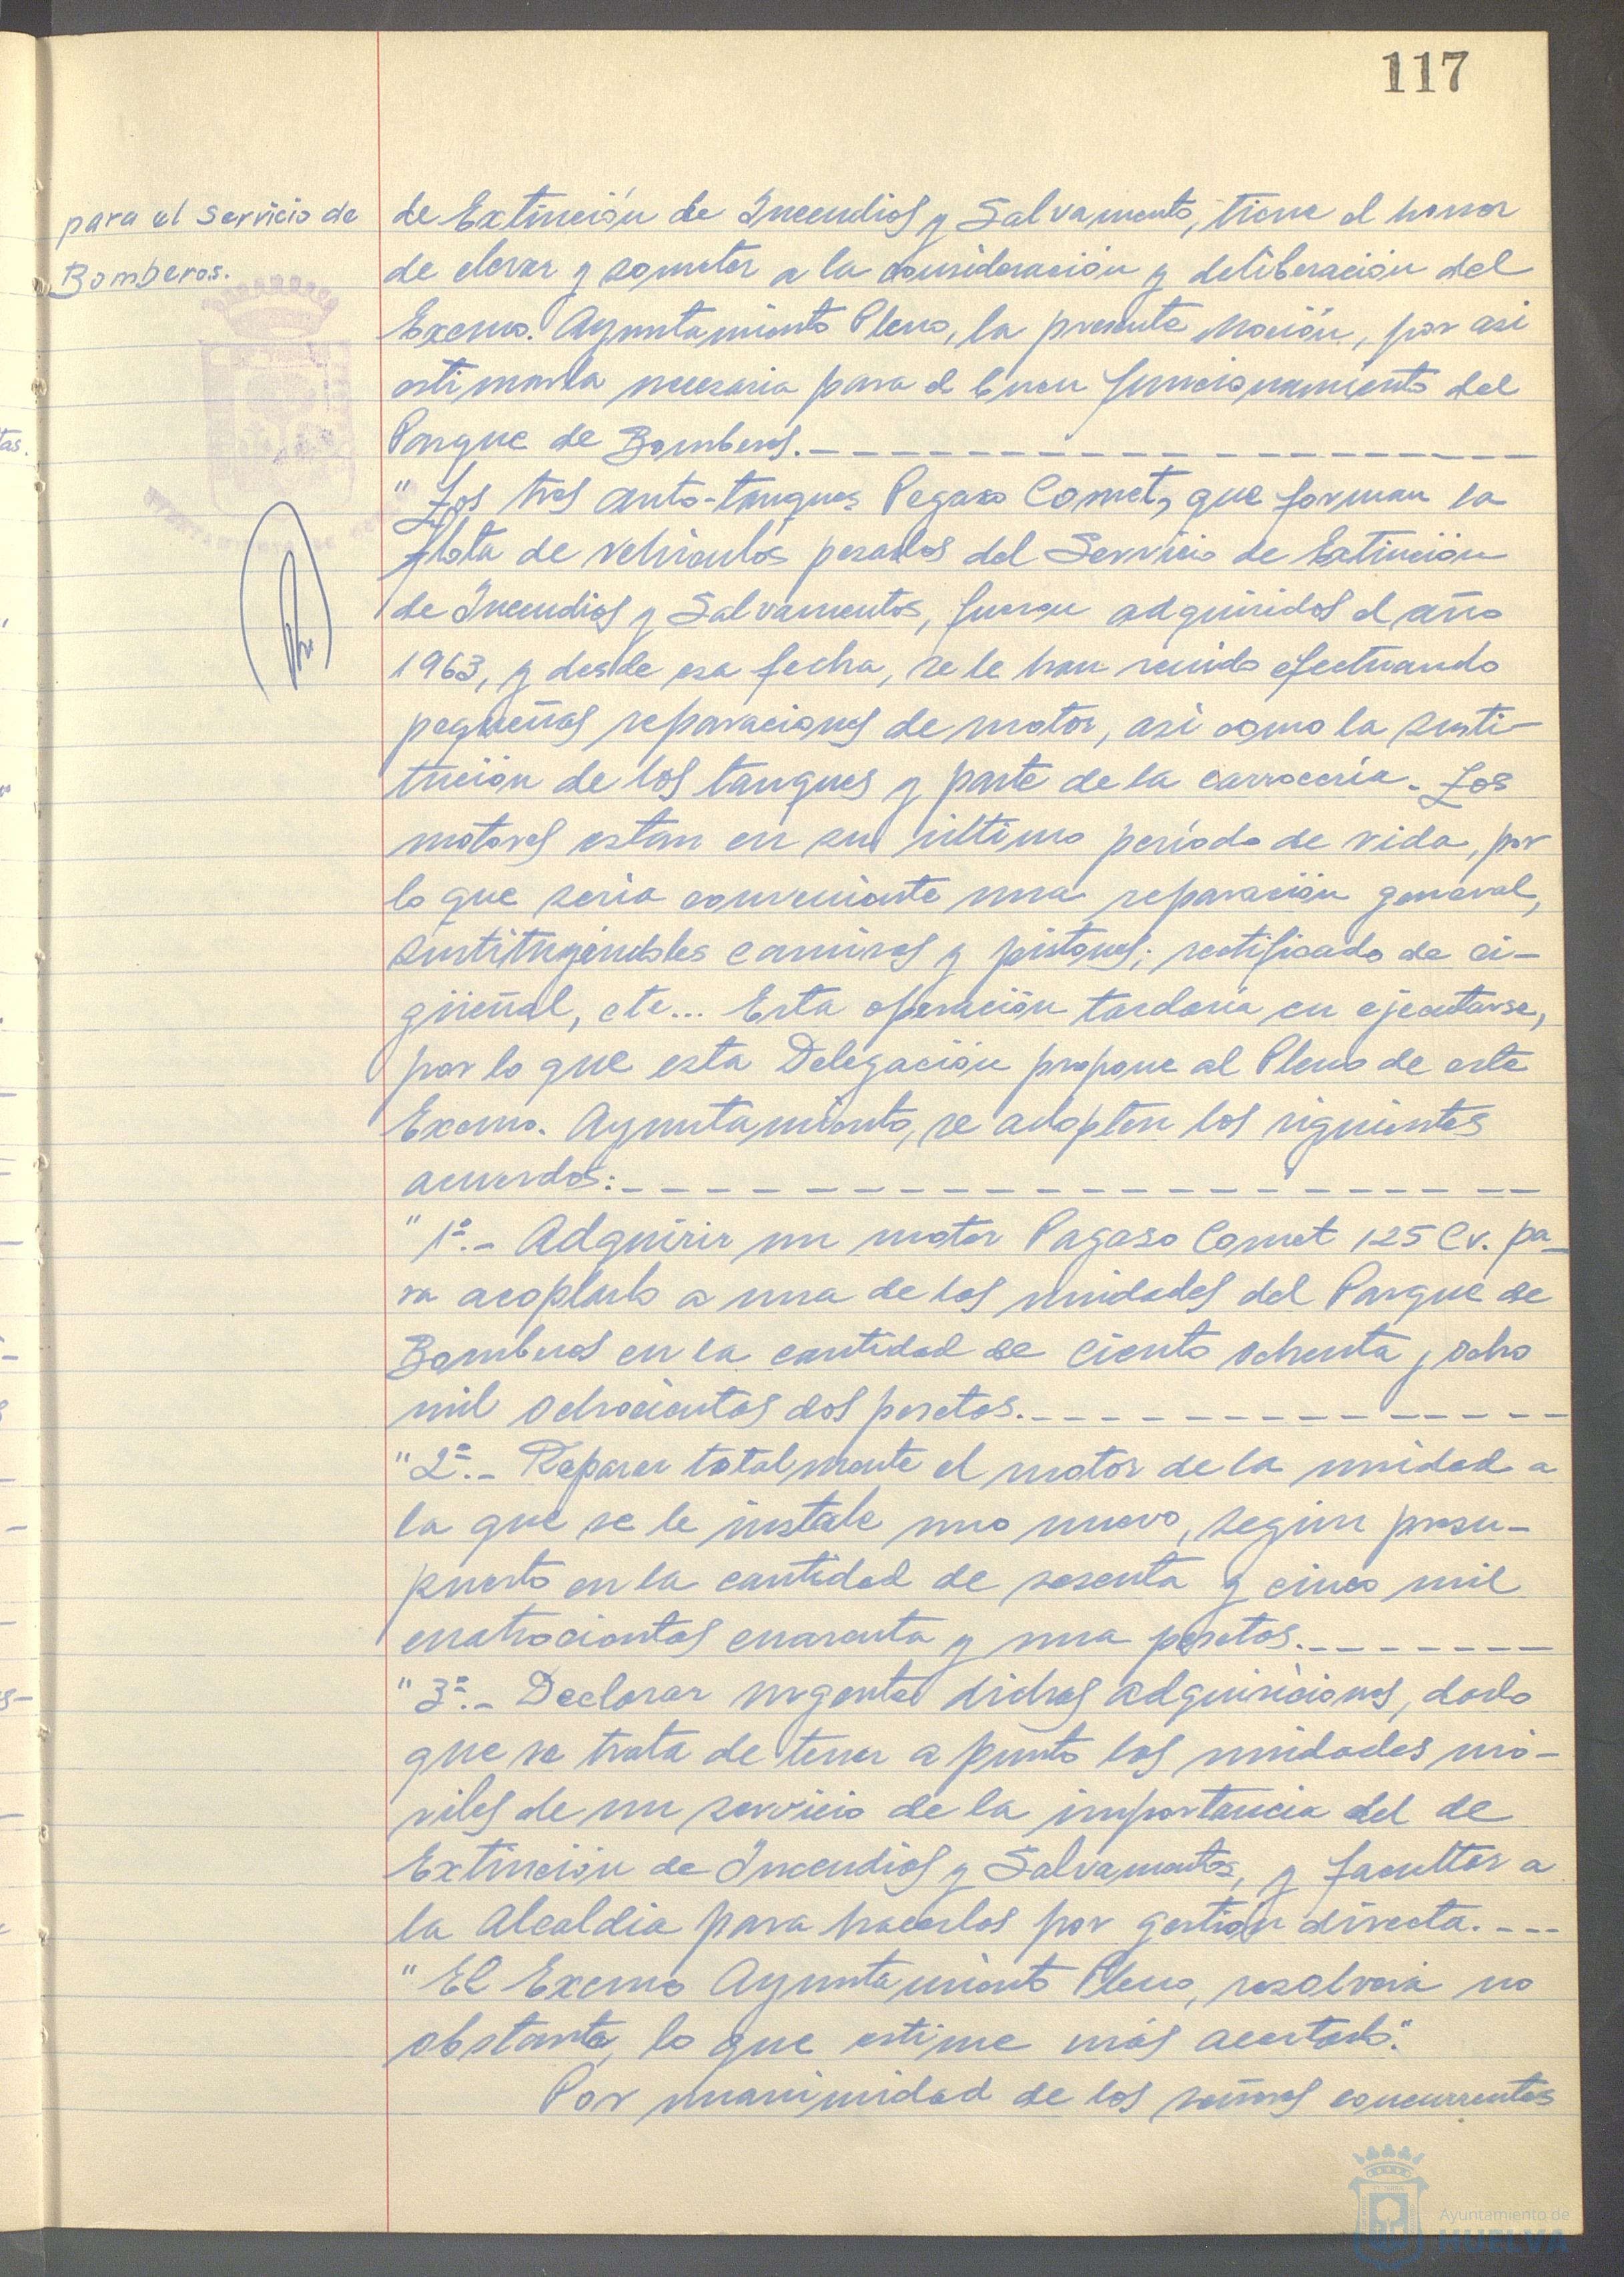 117
para el servicio de
Bomberos.
de Extinción de Incendios y Salvamento, tiene el honor
de elevar y someter a la consideración y deliberación del
Excmo. Ayuntamiento Pleno, la presente Moción, por asi
estimarla necesaria para el buen funcionamiento del
Parque de Bomberos.
" Los tres auto-tanques Pegaso Comet, que forman la
flota de vehiculos pesados del Servicio de Extinción
de Incendios y Salvamentos, fueron adquiridos el año
1963, y desde esa fecha, se le han venido efectuando
pequeñas reparaciones de motor, asi como la susti-
tución de los tanques y parte de la carrocería. Los
motores estan en su último período de vida, por
lo que seria conveniente una reparación general,
sustituyéndoles camisas y pistones; rectificado de ci-
güeñal, etc... Esta operación tardaría en ejecutarse,
por lo que esta Delegación propone al Pleno de este
Excmo. Ayuntamiento, se adopten los siguientes
acuerdos:
" 1º.- Adquirir un motor Pagaso Comet 125 Cv. pa-
ra acoplarlo a una de las unidades del Parque de
Bomberos en la cantidad de ciento ochenta y ocho
mil ochocientas dos pesetas.
" 2º.- Reparar totalmente el motor de la unidad a
la que se le instale uno nuevo, según presu-
puesto en la cantidad de sesenta y cinco mil
cuatrocientas cuarenta y una pesetas.
" 3º.- Declarar urgente dichas adquisiciones, dado
que se trata de tener a punto las unidades mó-
viles de un servicio de la importancia del de
Extinción de Incendios y Salvamentos, y facultar a
la Alcaldia para hacerlos por gestión directa.
" El Excmo Ayuntamiento Pleno, resolverá no
obstante, lo que estime más acertado."
Por unanimidad de los señores concurrentes
Ayuntamiento de
HUELVA